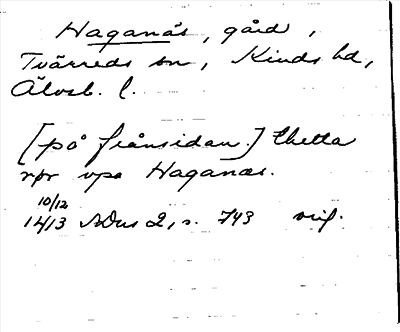 Haganäs, gård,
Tvärreds sn, Kinds hd,
Älvsb. l.
[på frånsidan.] thetta
vpa Haganæs.
10/12
1413 SDns 2, s. 743 orig.